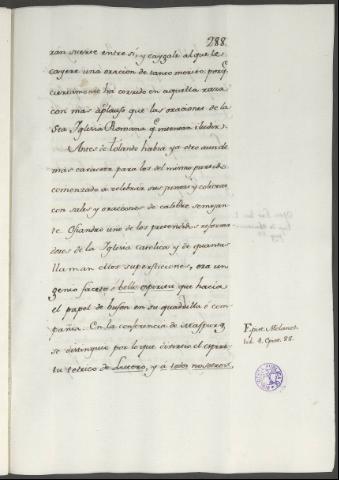 288.
ran suerte entre sí, y caygale al que le
cayere una oracion de tanto merito: porq.
ciertamente ha corrido en aquella raza
con mas aplauso que las oraciones de la
Sta Iglesia Romana q.
Antes de Tolando habia ya otro aun de
mas caracter para los del mismo partido
comenzado à celebrir sus penas y coleras
con sales y oraciones de calibre semejan
te. Osiandro uno de los pretendidos reforma
dores de la Iglesia catolica y de quanta
llaman ellos supersticione, era un
genio faceto ó bello espiritu que hacia
el papel de bufon en su quadrilla ó com
pañia. En la conferencia de
se distinguiò por lo que divirtio el espiri
tu tetrico de Lutero, y à todos nosotros,
Epist. Melanct.
lib. 4. Epist. 88.